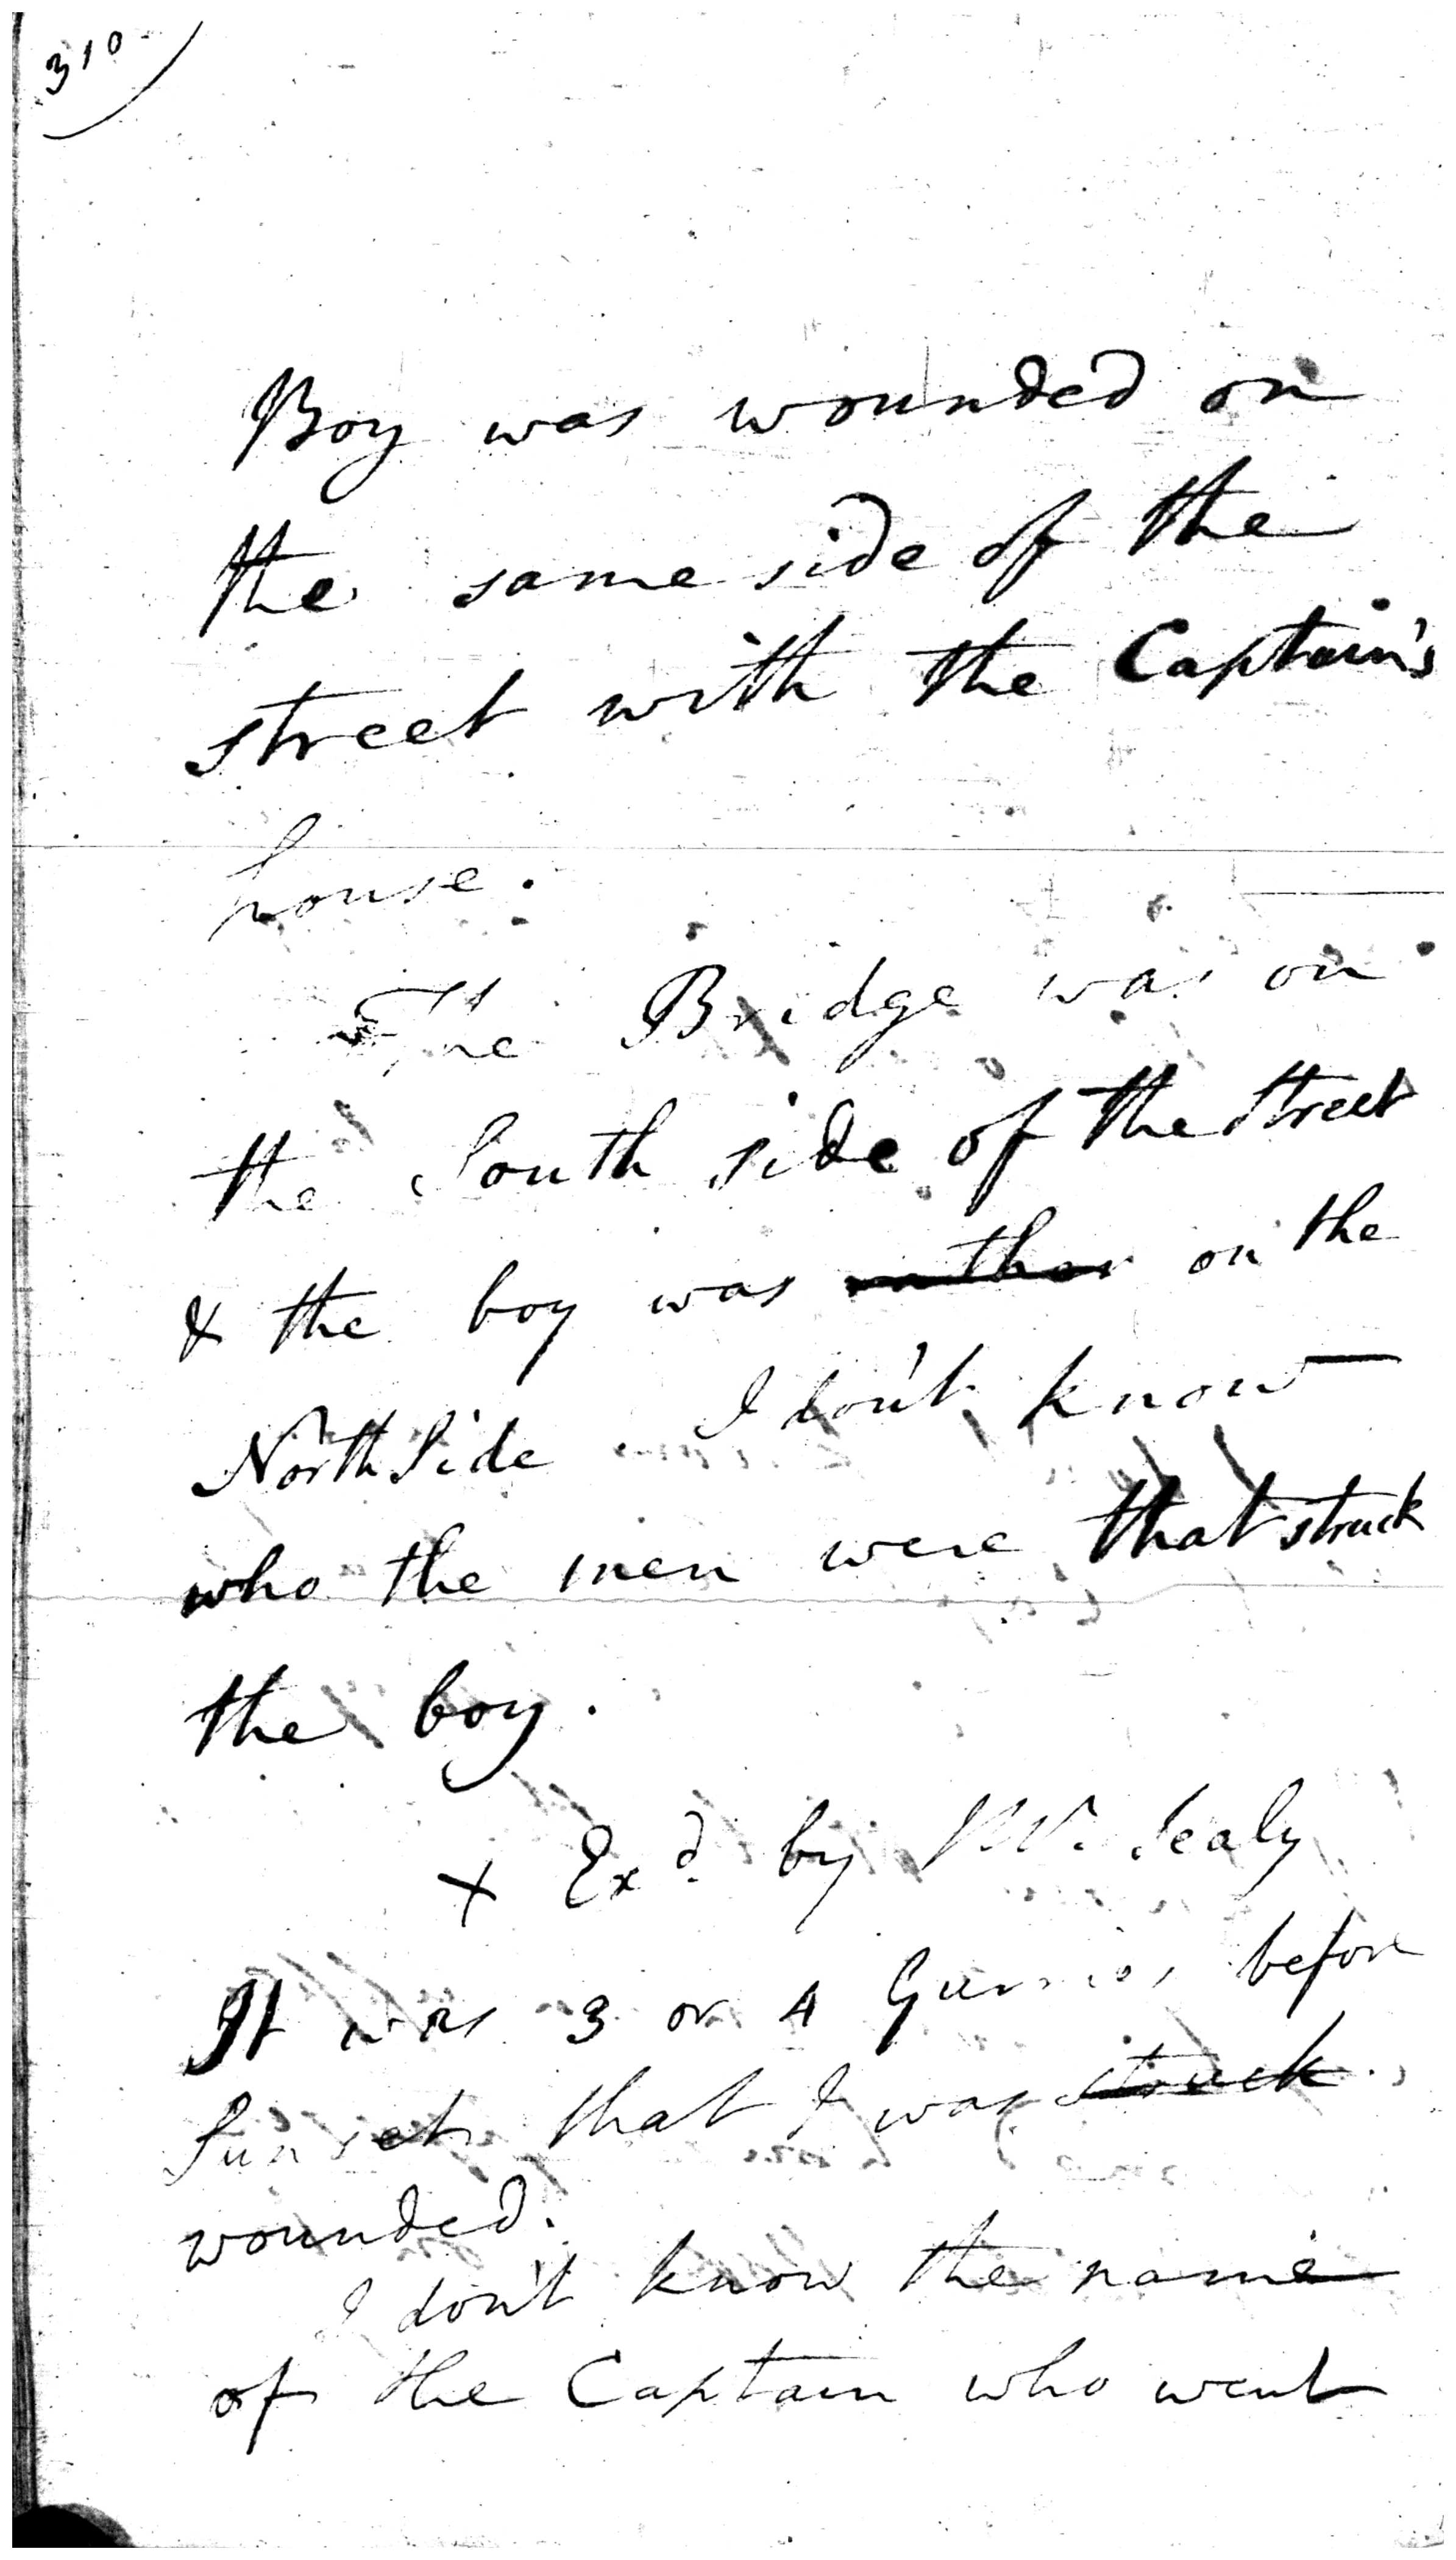 310
Boy was wounded on
the same side of the
street with the Captain's
house.
The Bridge was on
the South side of the Street
& the boy was rather on the
North Side I don't know
who the men were that struck
the boy.
X Exd. by Mr. Sealy
It was 3 or 4 Gurries before
Sunset that I was struck
wounded.
I don't know the name
of the Captain who went